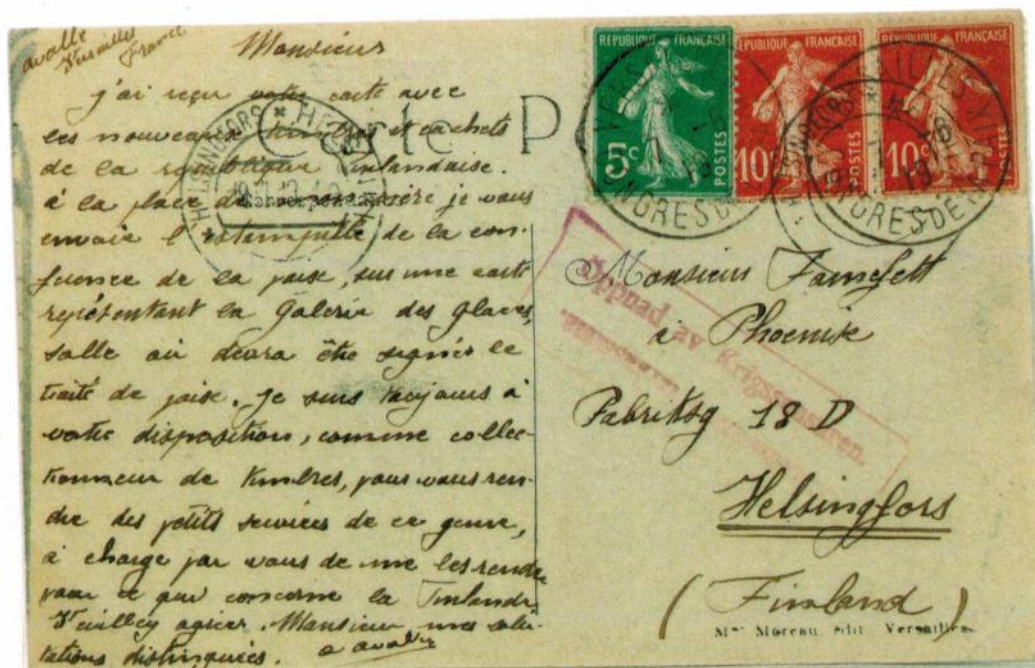 avallé
Versailles
France
Monsieur
j'ai reçu votre carte avec
les nouveaux timbres et cachets
de la republique Finlandaise.
à la place de je vous
envoie l'estampille de la con-
ference de la paix, sur une carte
représentant la Galerie des Glaces,
salle où devra être signée le
traité de paix. Je suis toujours à
votre disposition, comme collec-
tionneur de timbres, pour vous ren-
dre des petits services de ce genre,
à charge par vous de me les rendre
pour ce qui concerne la Finlande
Veuillez agréer, Monsieur, mes salu-
tations distinguées.
Carte P
HELSINGFORS * HELSINKI
RÉPUBLIQUE FRANÇAISE
5c POSTES
RÉPUBLIQUE FRANÇAISE
10c POSTES
RÉPUBLIQUE FRANÇAISE
10c POSTES
Öppnad av Krigscensuren.
Monsieur
à Phoenix
Fabriksg 18 D
Helsingfors
(Finland)
Mme Moreau édit. Versailles